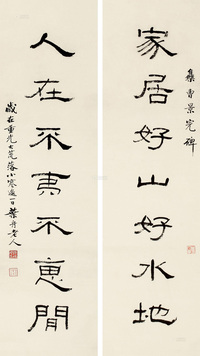 集曹景完碑
家居好山好水地
人在不夷不惠閒
歲在重光大荒落小寒一日老人